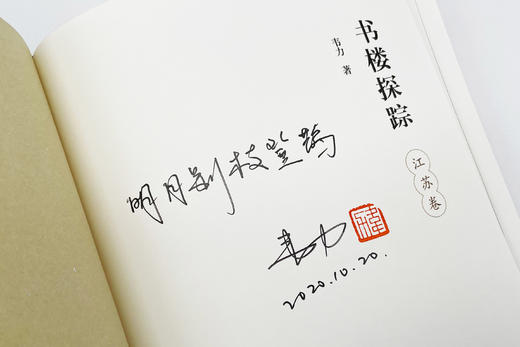 书楼探踪
韦力 著
江苏卷
明月别枝驚鹊
韦力
2020.10.20.